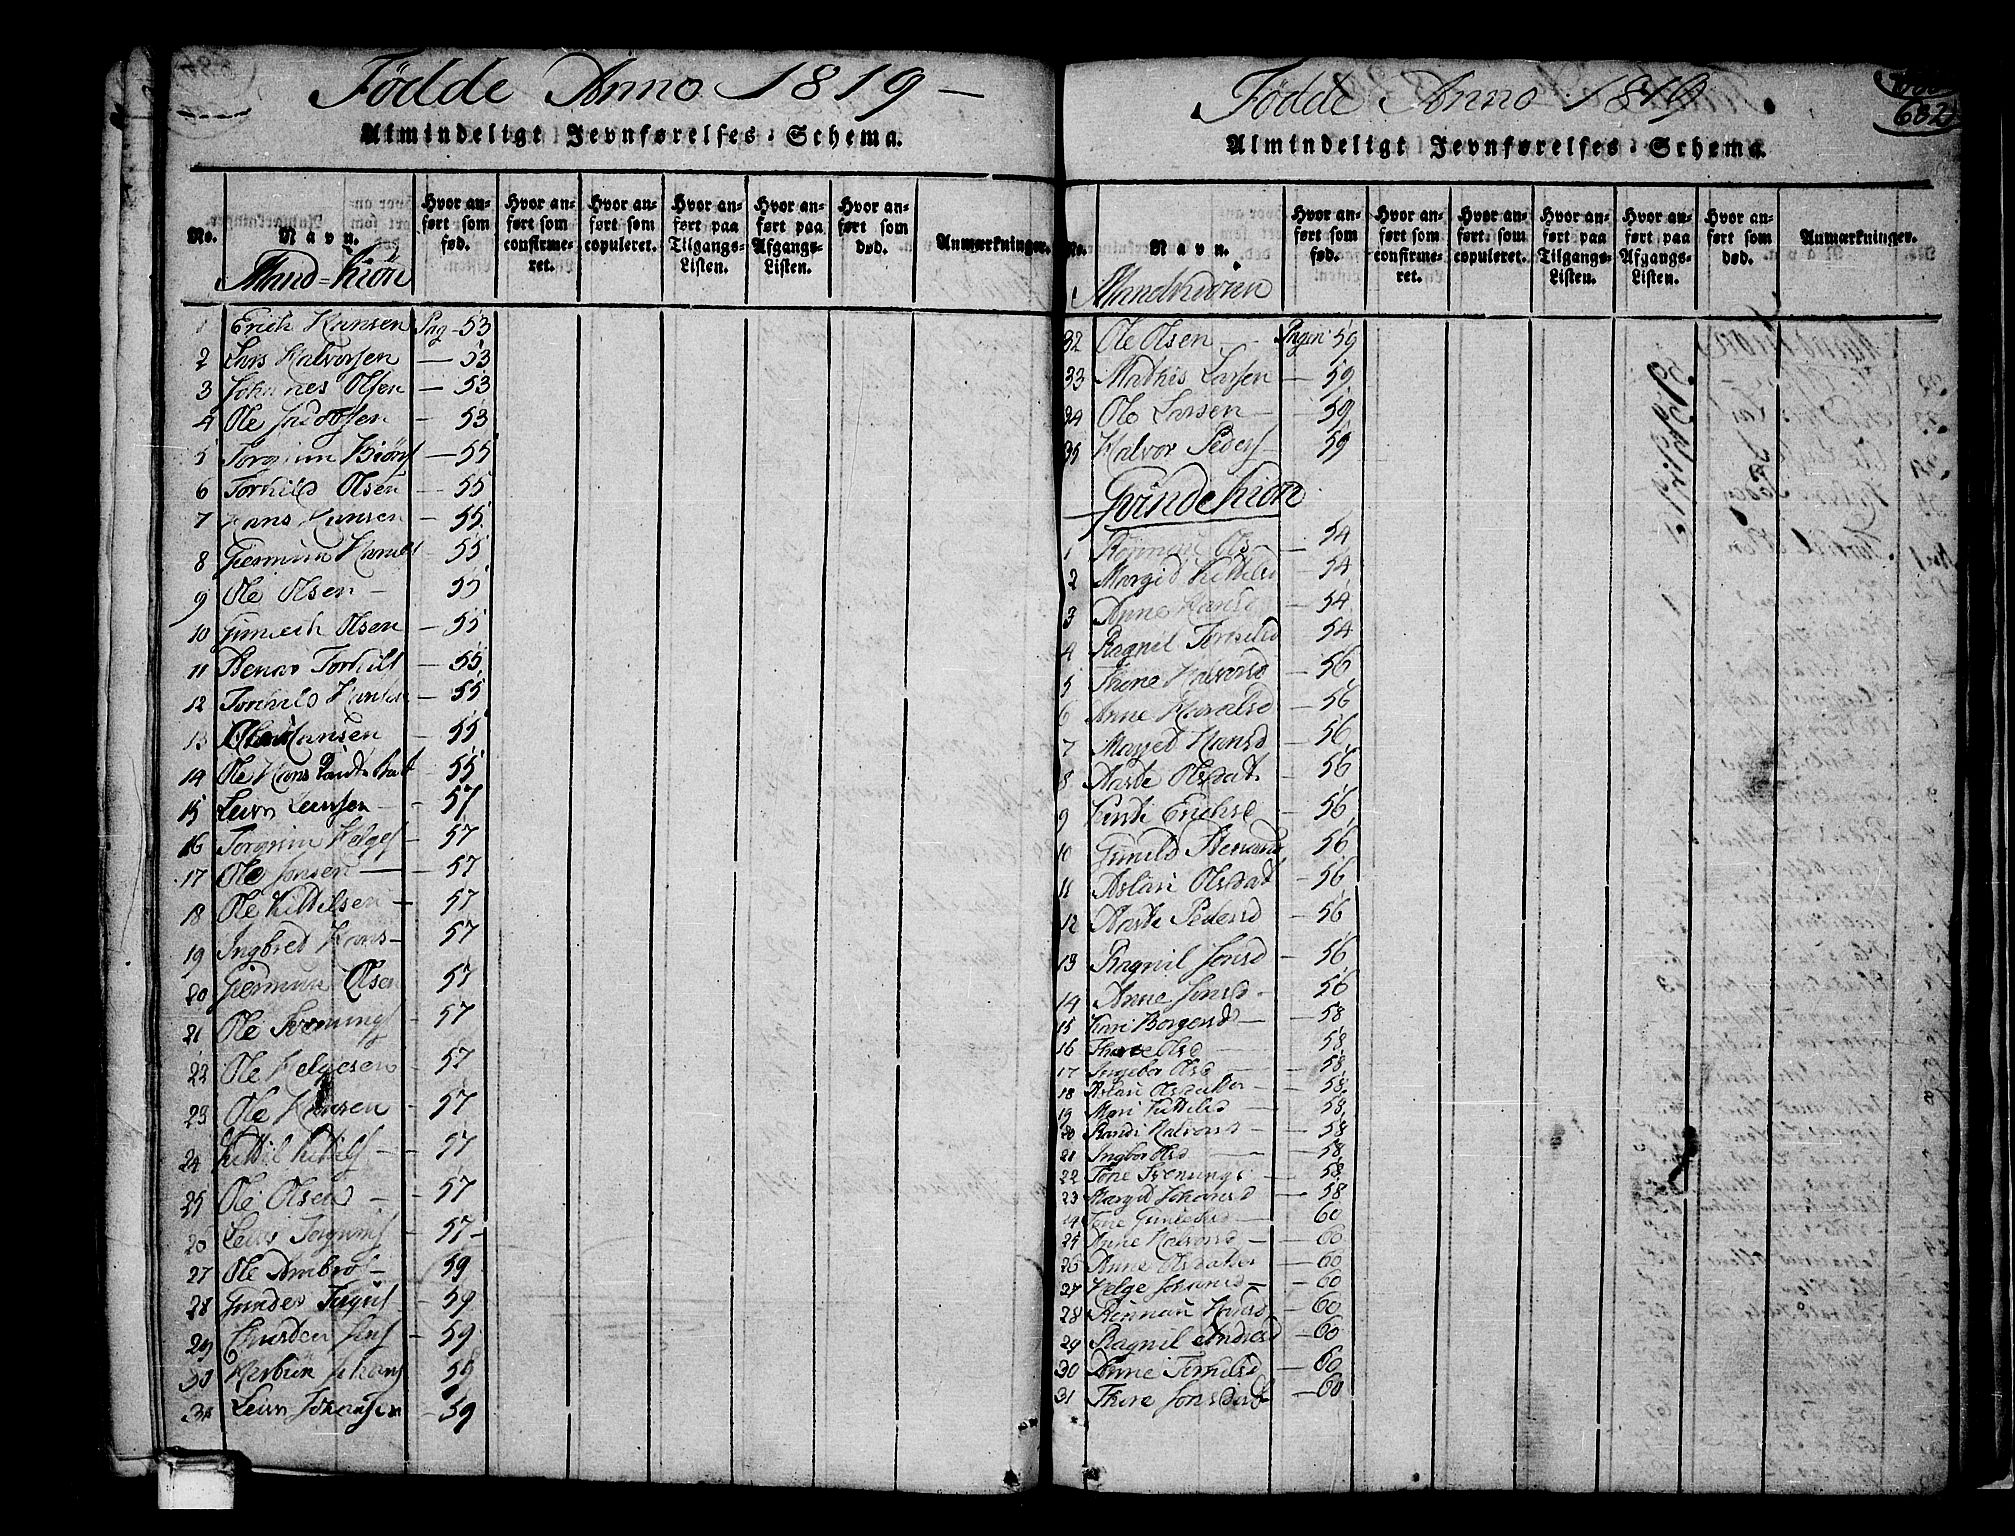 Födde Anno 1819 —
Almindeligt Jevnførelses-Schema.
No.
Navn.
Hvor anført som fød.
Hvor anført som confirmeret.
Hvor anført som copuleret.
Hvor anført paa Tilgangs-Listen.
Hvor anført paa Afgangs-Listen.
Hvor anført som død.
Anmærkninger.
Mand-Kiön
1 Erich Hansen Pag - 53
2 Lars Halvorsen — 53
3 Johannes Olsen — 53
4 Ole — 53
5 Torgrim Biörns — 55
6 Torkild Olsen — 55
7 Hans Hansen — 55
8 Giermun — 55
9 Ole Olsen — 55
10 Gunlech Olsen — 55
11 Stenar Torkils — 55
12 Torkild Hansen — 55
13 Hansen 55
14 Ole Hans — 55
15 Levor — 57
16 Torgrim Helges — 57
17 Ole Jonsen — 57
18 Ole Kittilsen — 57
19 Ingbret Hans — 57
20 Giermun Olsen 57
21 Ole Svenungs — 57
22 Ole Helgesen — 57
23 Ole Hansen — 57
24 Kittil Kittils — 57
25 Ole Olsen — 57
26 Torgrims — 57 -
27 Ole Ambro — 59
28 Gunder — 59
29 Christen Jens — 59
30 Johans 59
31 Levor Johansen — 59
Födde Anno 1819.
602
Almindeligt Jevnførelses-Schema.
No.
Navn.
Hvor anført som fød.
Hvor anført som confirmeret.
Hvor anført som copuleret.
Hvor anført paa Tilgangs-Listen.
Hvor anført paa Afgangs-Listen.
Hvor anført som død.
Anmærkninger.
Mandkiönen
32 Ole Olsen Pagen 59
33 Mathis Larsen — 59
34 Ole Larsen — 59
35 Halvor Peders — 59
Qvindekiön
1 Ols — 54
2 Margid Kittilsd — 54
3 Anne Hansd — 54
4 Ragnil Torkilsd 54
5 Thone Halvorsd — 56
6 Anne — 56
7 Marged Hansd — 56
8 Aaste Olsdat. — 56
9 Erichsd — 56
10 Gunild 56
11 Aslau Olsdat — 56
12 Aaste Pedersd — 56
13 Ragnil Jonsd — 56
14 Anne Jonsd — 56
15 Kari Borgersd — 58
16 Thone Olsd — 58
17 Ingebor Olsd — 58
18 Aslau Olsdatter — 58
19 Mari Kittilsd — 58
20 Randi Halvorsd — 58
21 Ingbor Olsd — 58
22 Tone Svenungs — 58
23 Margid Johansd — 58
24 Tone — 60
25 Anne Halvorsd — 60
26 Anne Olsdatter — 60
27 Helge Johansd — 60
28 Hansd — 60
29 Ragnil Andresd — 60
30 Anne Torkilsd — 60
31 Thore — 60